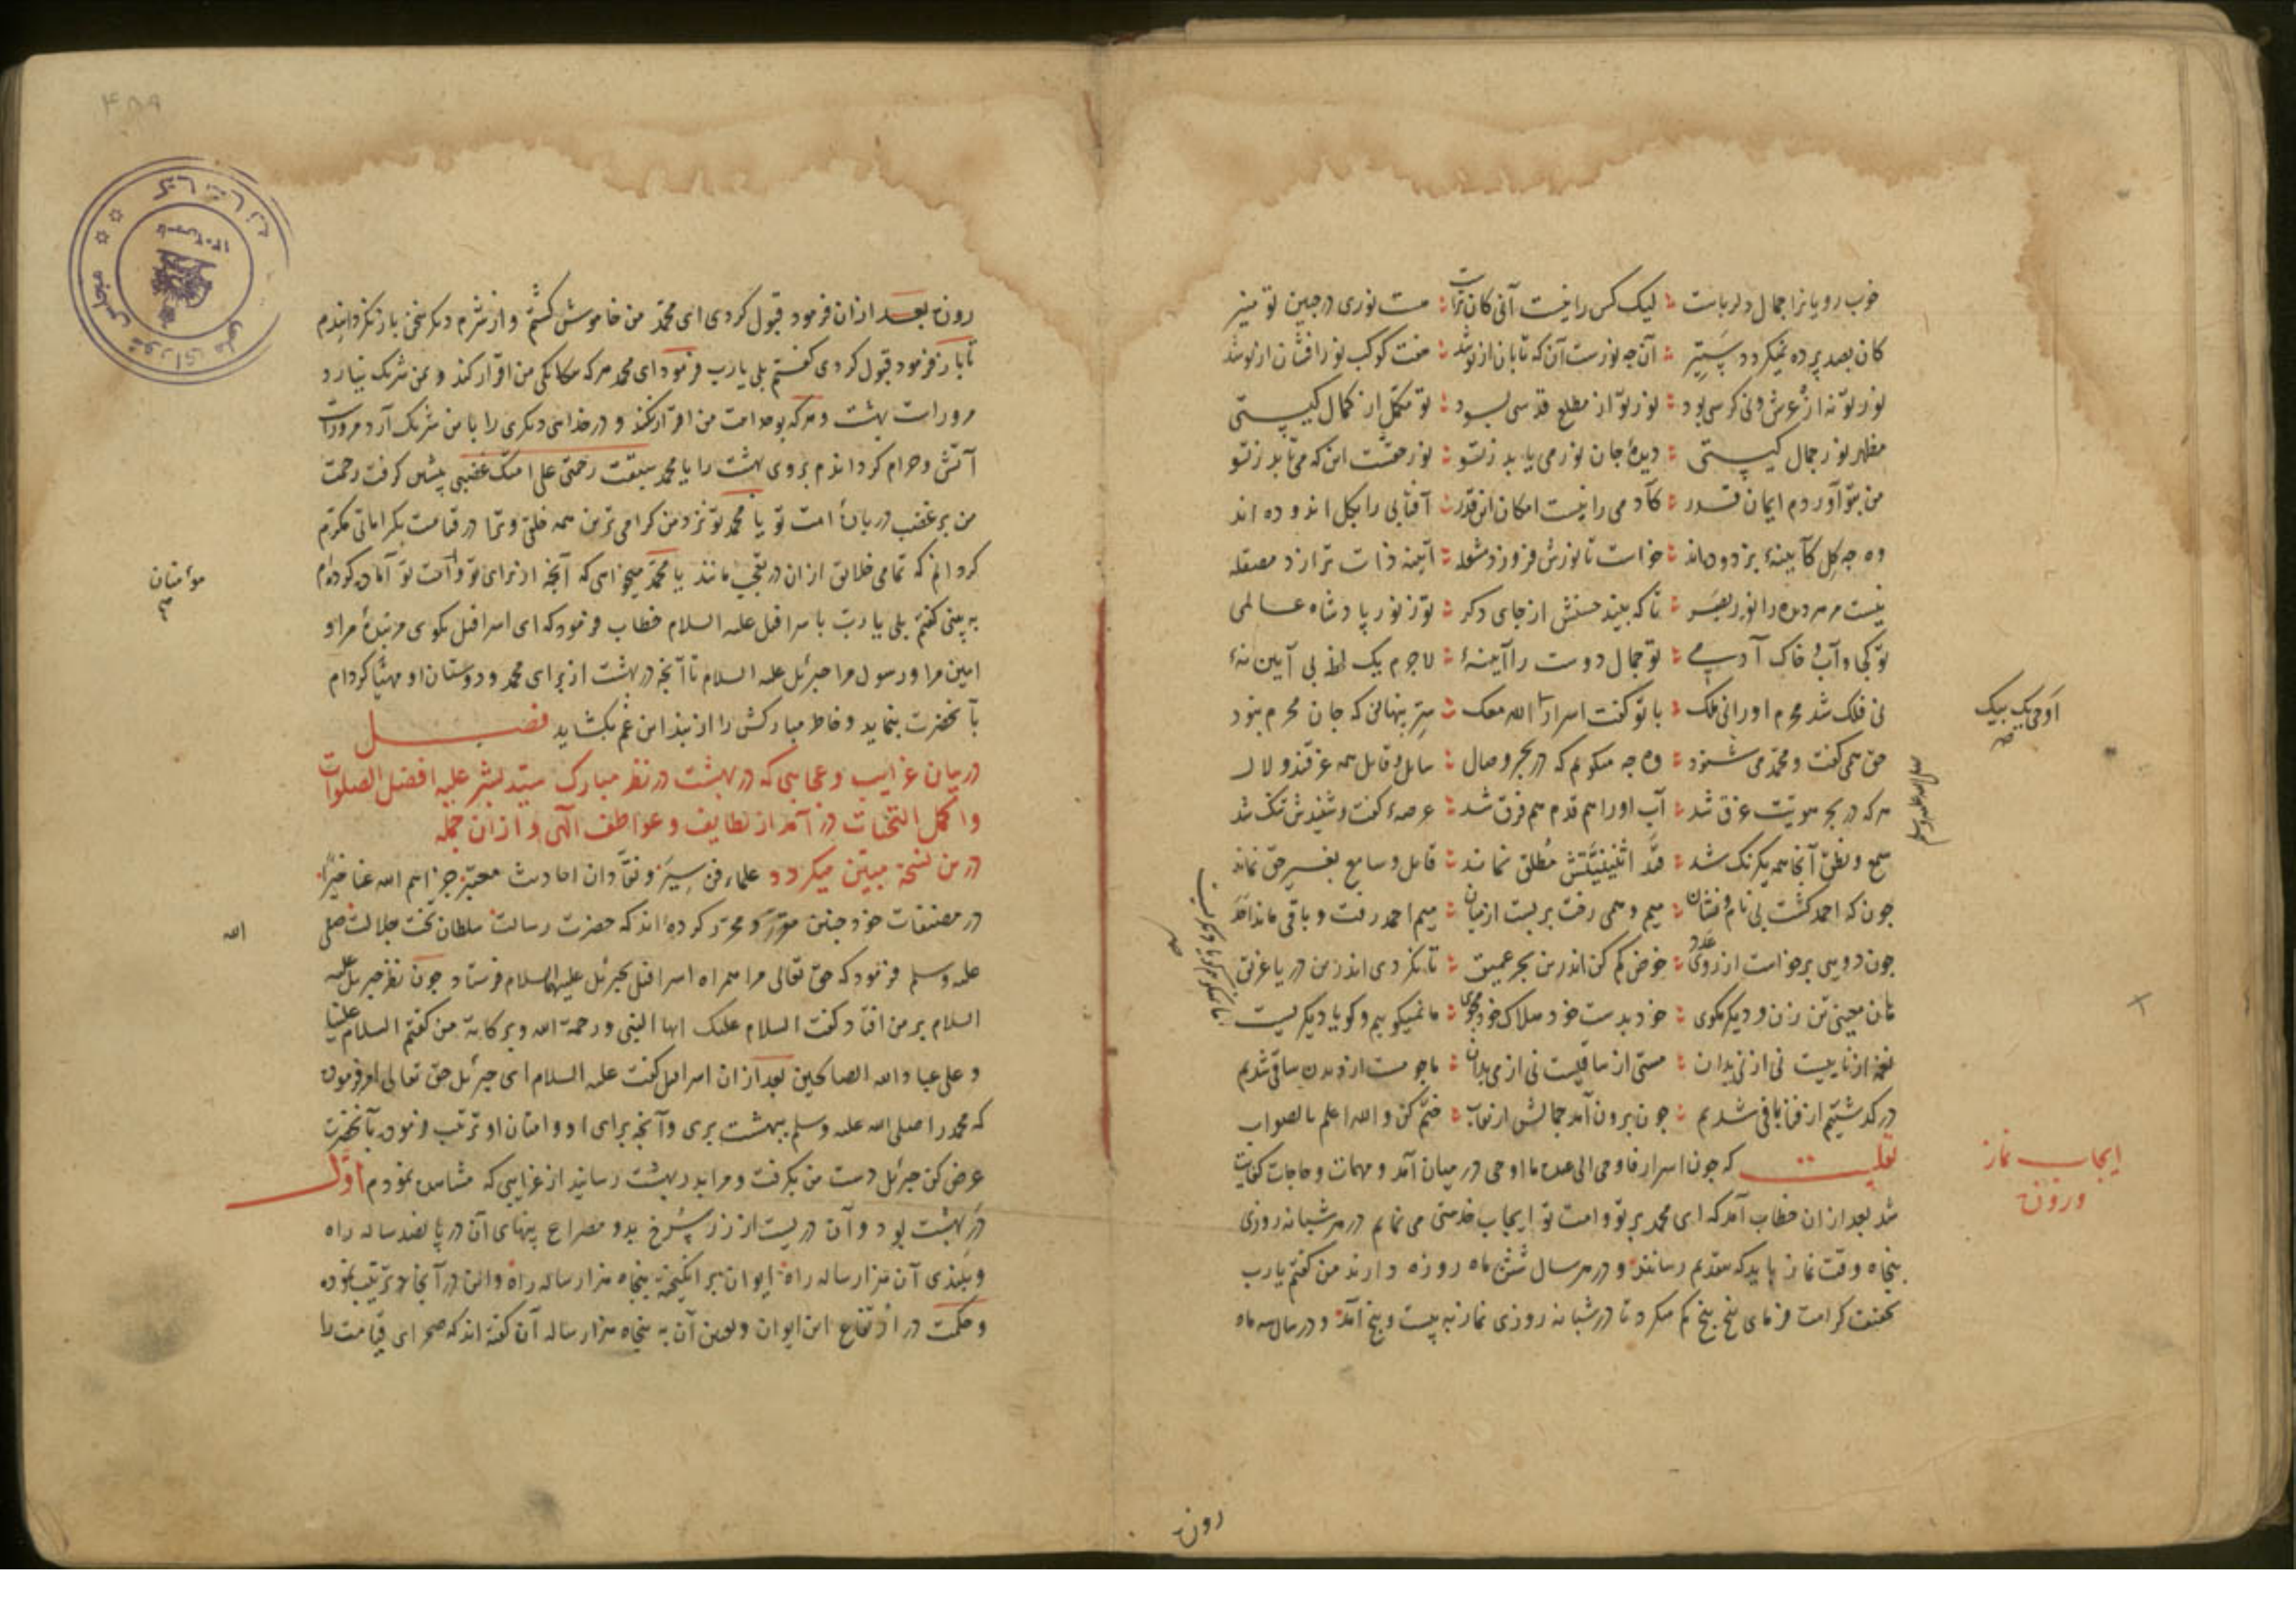 خوب رویانرا جمال دلرباست ؛ لیک کس را نیست آنی کان تراست ؛ هست نوری در جبین تو منیر
کان بصد پرده نمیکردد ستیر ؛ آن چه نورست آن که تابان از تو شد ؛ هفت کوکب نور افشان از تو شد
نور تو نه از عرش و نی کرسی بود ؛ نور تو از مطلع قدسی بود ؛ تو مکمل از کمال کیستی
مظهر نور جمال کیستی ؛ دیدهٔ جان نور می یابد ز تو ؛ نور حقست این که می تابد ز تو
من بتو آوردم ایمان قدر ؛ کآدمی را نیست امکان این قدر ؛ آفتابی را بکل اندوده اند
وه چه کل کآیینهٔ بزدوده اند ؛ خواست تا نورش فروزد مشعله ؛ آینه ذات ترا زد مصقله
نیست مر مردیده را نور بصر ؛ تا که بیند حسنش از جای دکر ؛ تو ز نور پادشاه عالمی
تو کجا و آب و خاک آدمی ؛ تو جمال دوست را آیینهٔ ؛ لاجرم یک لحظه بی آیین نهٔ
نی فلک شد محرم او را نی ملک ؛ با تو کفت اسرار الله معک ؛ سر پنهانی که جان محرم نبود
حق همی کفت و محمد می شنود ؛ وه چه میکویم که در بحر وصال ؛ سایل و قایل همه غرقند و لال
هر که در بحر هویت غرق شد ؛ آب او را هم قدم هم فرق شد ؛ عرصهٔ کفت و شنیدش تنک شد
سمع و نطق آنجا همه یکرنک شد ؛ قد اثنینیتش مطلق نماند ؛ قایل و سامع بغیر حق نماند
چون که احمد کشت بی نام و نشان ؛ میم وهمی رفت بربست از میان ؛ میم احمد رفت و باقی ماند احد
چون دویی برخواست از روی عدد ؛ خوض کم کن اندرین بحر عمیق ؛ تا نکردی اندرین دریا غریق
هان معینی تن زن و دیکر مکوی ؛ خود بدست خود هلاک خود مجوی ؛ ما نمیکوییم و کویا دیکریست
نغمه از ناییست نی از نی بدان ؛ مستی از ساقیست نی از می بدان ؛ ما چو مست از دیدن ساقی شدیم
در کذشتیم از فنا باقی شدیم ؛ چون برون آمد جمالش از نقاب ؛ ختم کن والله اعلم بالصواب
نقلست که چون اسرار فاوحی الی عبده ما اوحی در میان آمد و مهمات و حاجات کفایت
شد بعد از ان خطاب آمد که ای محمد بر تو و امت تو ایجاب خدمتی می نمایم در هر شبانه روزی
پنجاه وقت نماز باید که بتقدیم رسانند و در هر سال شش ماه روزه دارند من کفتم یا رب
کرامت فرمای پنج پنج کم میکرد تا در شبانه روزی نماز به بیست و پنج آمد و در سال سه ماه
اوحی یک بیک
صح
صلی الله علیه وسلم
ایجاب نماز
و روزه
روزه
روزه بعد از ان فرمود قبول کردی ای محمد من خاموش کشتم و از شرم دیکر سخن باز نکردانیدم
تا باز فرمود قبول کردی کفتم بلی یا رب فرمود ای محمد هر که بیکانکی من اقرار کند و بمن شرک نیارد
مر وراست بهشت و هر که بوحدانیت من اقرار نکند و در خدایی دیکری را با من شریک آرد مر وراست
آتش و حرام کردانیدم بر وی بهشت را یا محمد سبقت رحمتی علی امتک غضبی پیشی کرفت رحمت
من بر غضب در بارهٔ امت تو یا محمد تو نزد من کرامی ترین همه خلقی و ترا در قیامت بکراماتی مکرم
کردانم که تمامی خلایق از ان در تعجب مانند یا محمد میخواهی که آنچه از برای تو و امت تو آماده کرده ام
به بینی کفتم بلی یا رب باسرافیل علیه السلام خطاب فرمود که ای اسرافیل بکوی مر بندهٔ مرا و
امین مرا و رسول مرا جبرئیل علیه السلام تا آنچه در بهشت از برای محمد و دوستان او مهیا کرده ام
بآنحضرت بنماید و خاطر مبارکش را از بند این غم بکشاید فصل
در بیان غرایب و عجایبی که در بهشت در نظر مبارک سید بشر علیه افضل الصلوات
و اکمل التحیات در آمد از لطایف و عواطف الهی و از ان جمله
درین نسخه مبین میکردد علماء فن سیر و نقادان احادیث معتبر جزاهم الله عنا خیرا
در مصنفات خود چنین مقرر و محرر کرده اند که حضرت رسالت سلطان تخت جلالت صلی
علیه وسلم فرمود که حق تعالی مرا همراه اسرافیل بجبرئیل علیهما السلام فرستاد چون نظر جبرئیل علیه
السلام بر من افتاد کفت السلام علیک ایها النبی ورحمة الله وبرکاته من کفتم السلام علینا
و علی عباد الله الصالحین بعد از ان اسرافیل کفت علیه السلام ای جبرئیل حق تعالی امر فرموده
که محمد را صلی الله علیه وسلم ببهشت بری و آنچه برای او و امتان او ترتیب فرموده بآنحضرت
عرض کن جبرئیل دست من بکرفت و مرا بدر بهشت رسانید از غرایبی که مشاهده نمودم اول
در بهشت بود و آن دریست از زر سرخ بدو مصراع پهنای آن در پانصد ساله راه
و بلندی آن هزار ساله راه ایوان بر انکیخته پنجاه هزار ساله راه
و حکمت در ارتفاع این ایوان و تعین آن به پنجاه هزار ساله آن کفته اند که صحرای قیامت را
مؤمنان
الله
مجلس شورای ملی